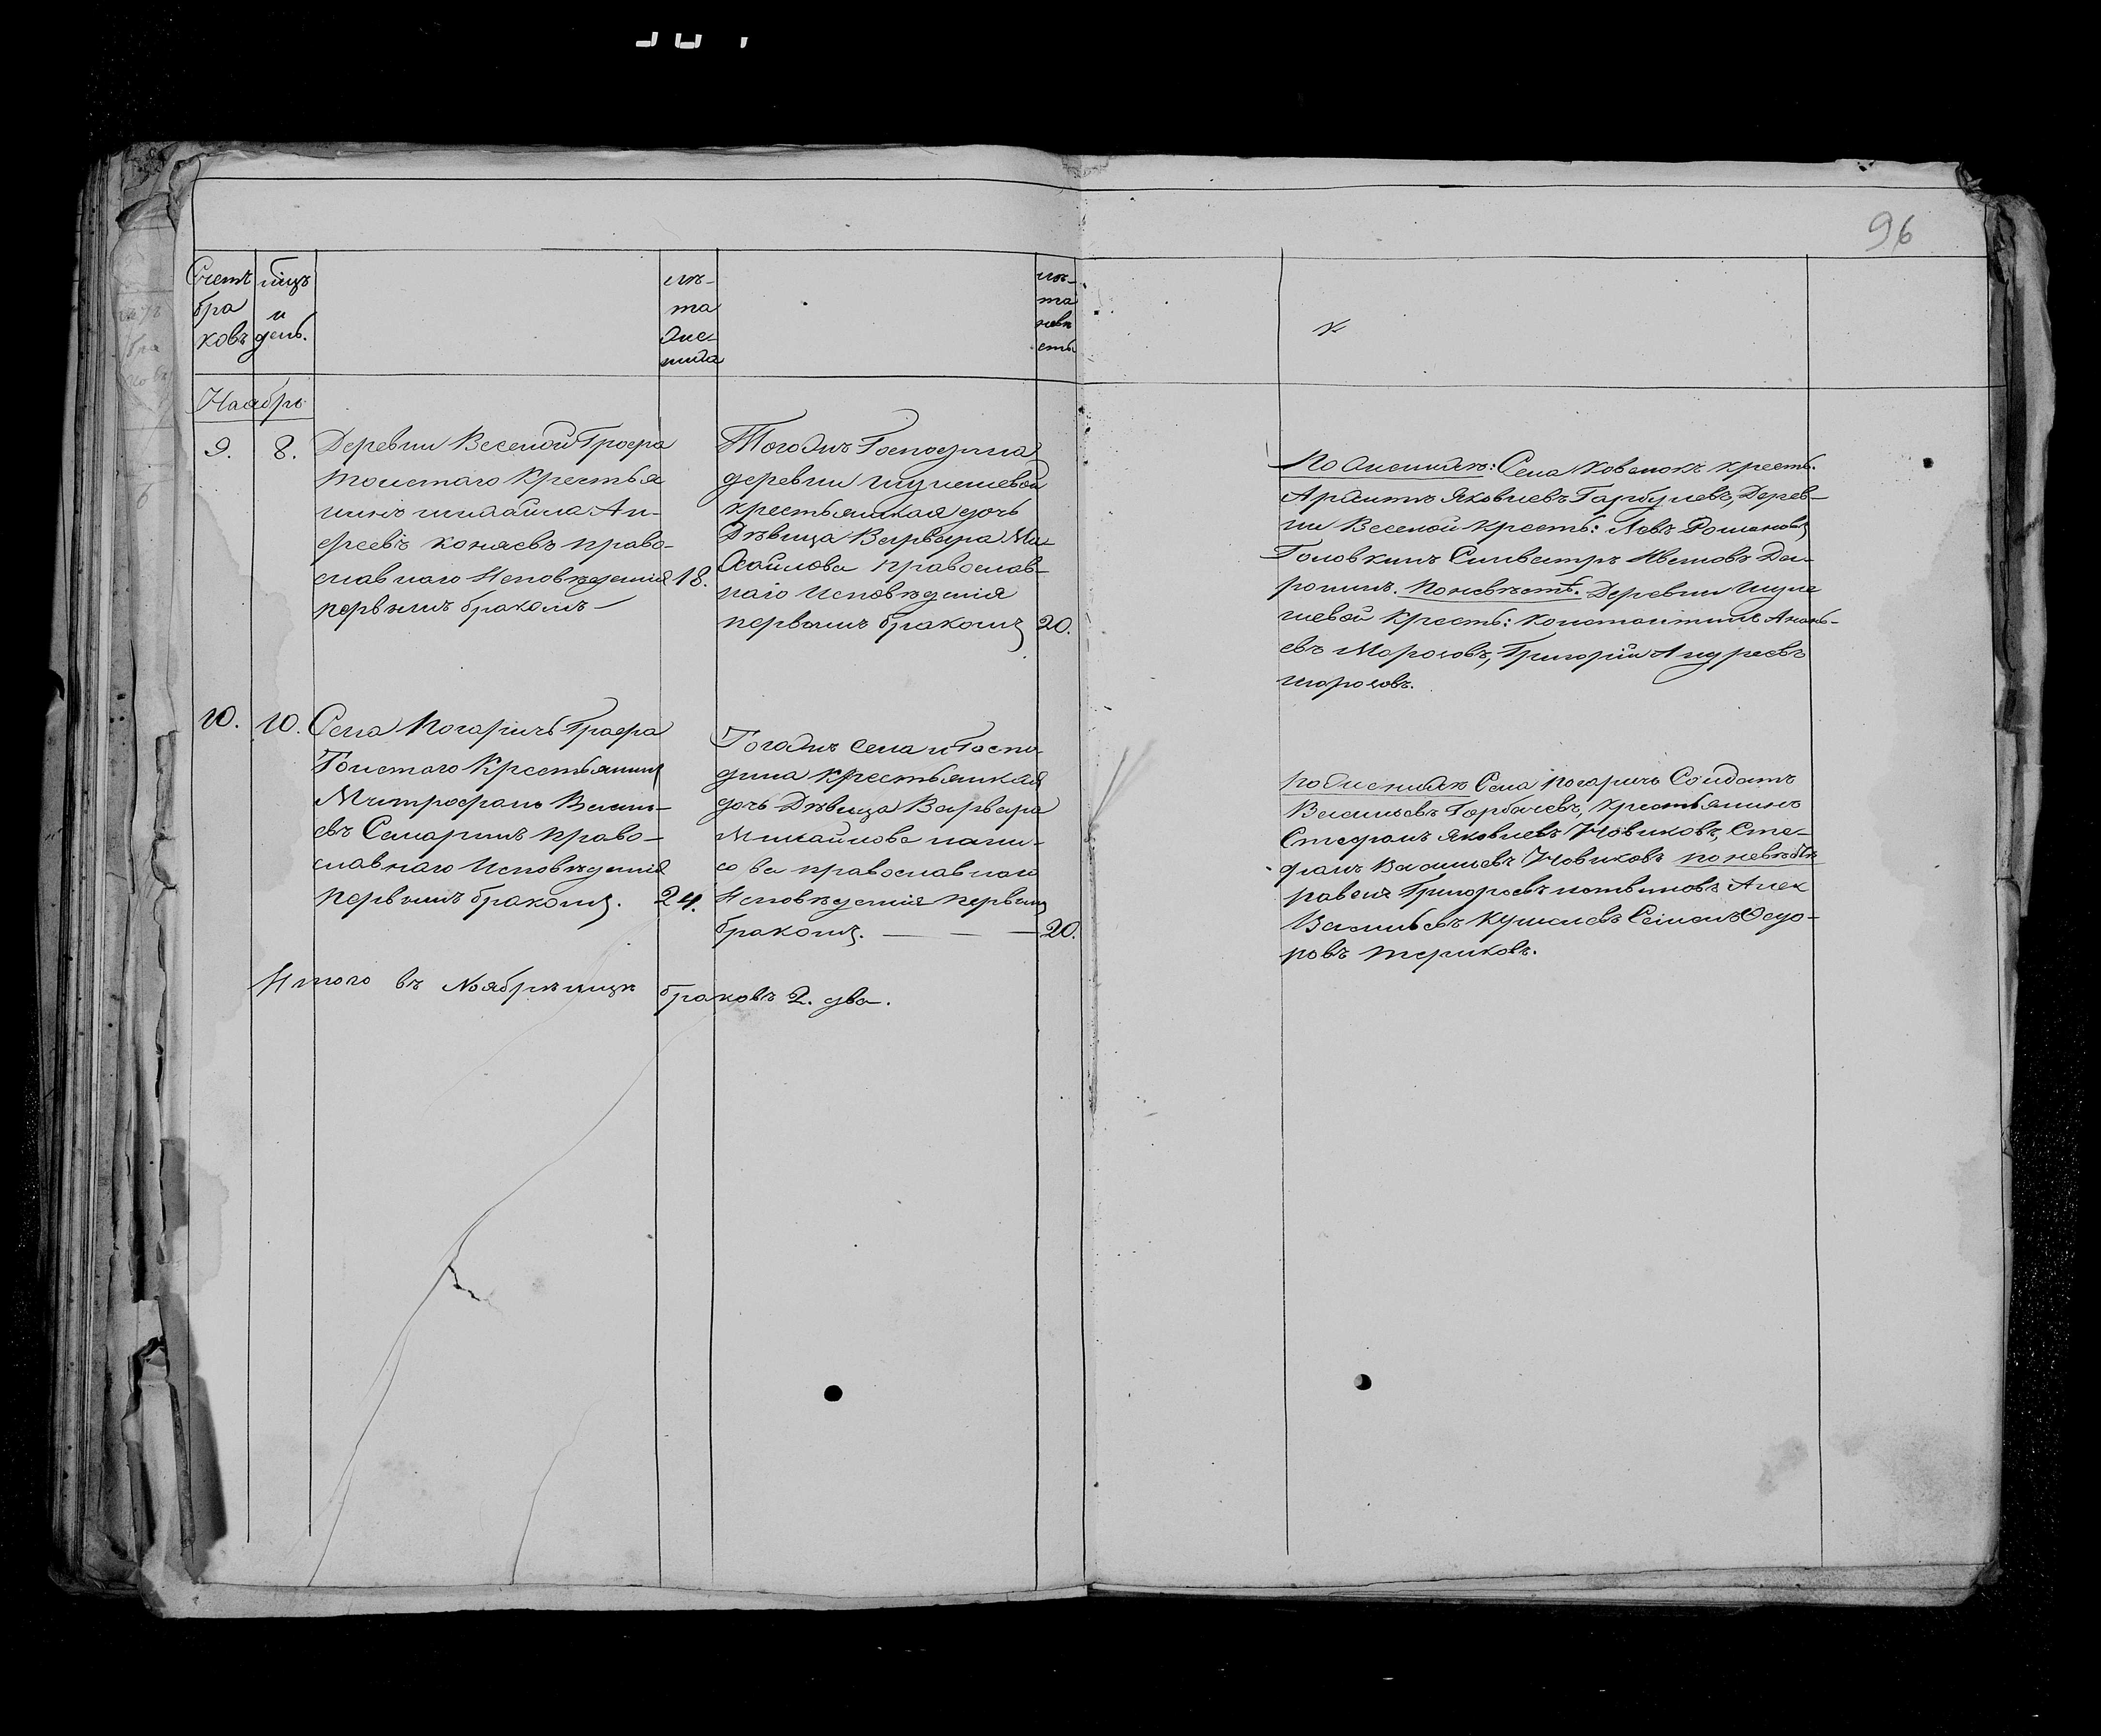 96
Счетъ
бра
ковъ
мцъ
и
день.
лѣ-
та
Же-
ниха
лѣ-
та
невѣ
сты
Наябрь
9.
8.
Деревни Веселой Графа
Толстаго Крестья
нинъ михайла Ан-
дреевъ коняевъ право-
славнаго Исповѣданія 18.
первымъ бракомъ
Тогожъ Господина
деревни
крестьянская дочь
Дѣвица Варвара Ми
хайлова православ-
наго Исповѣданія
первымъ бракомъ 20.
По Женихѣ: Села кресть:
Яковлевъ Гарбулевъ, Дерев-
ни Веселой Кресть: Левъ Романовъ
Головкинъ Силвестръ Ивановъ До-
ронинъ. По невѣстѣ. Деревни
Кресть: Константинъ Анань-
евъ Морозовъ, Григорій Андреевъ
морозовъ.
10.
10.
Села Погаричь Графа
Толстаго Крестьянинъ
Митрофанъ Василь-
евъ Самаринъ право-
славнаго Исповѣданія
первымъ бракомъ. 24.
Тогожъ села и Госпо
дина Крестьянская
дочь Дѣвица Варвара
Михайлова
православнаго
Исповѣданія первымъ
бракомъ. — — — 20.
по Женихѣ Села Погаричь Солдатъ
Васильевъ Горбачевъ, Крестьянинъ
Стефанъ Яковлевъ Новиковъ, Сте-
фанъ Васильевъ Новиковъ по невѣстѣ
Григорьевъ Алек
Васильевъ Семенъ Федо-
ровъ
Итого въ Ноябрѣ мцѣ браковъ 2. два.